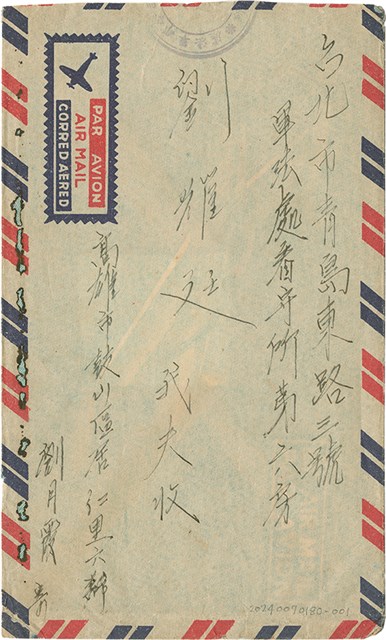 台北市青島東路三號
軍法處看守所第六房
劉耀廷 我夫收
高雄市鼓山區居仁里六鄰
劉月霞 寄
PAR AVION
AIR MAIL
CORREO AEREO
20240070180-001